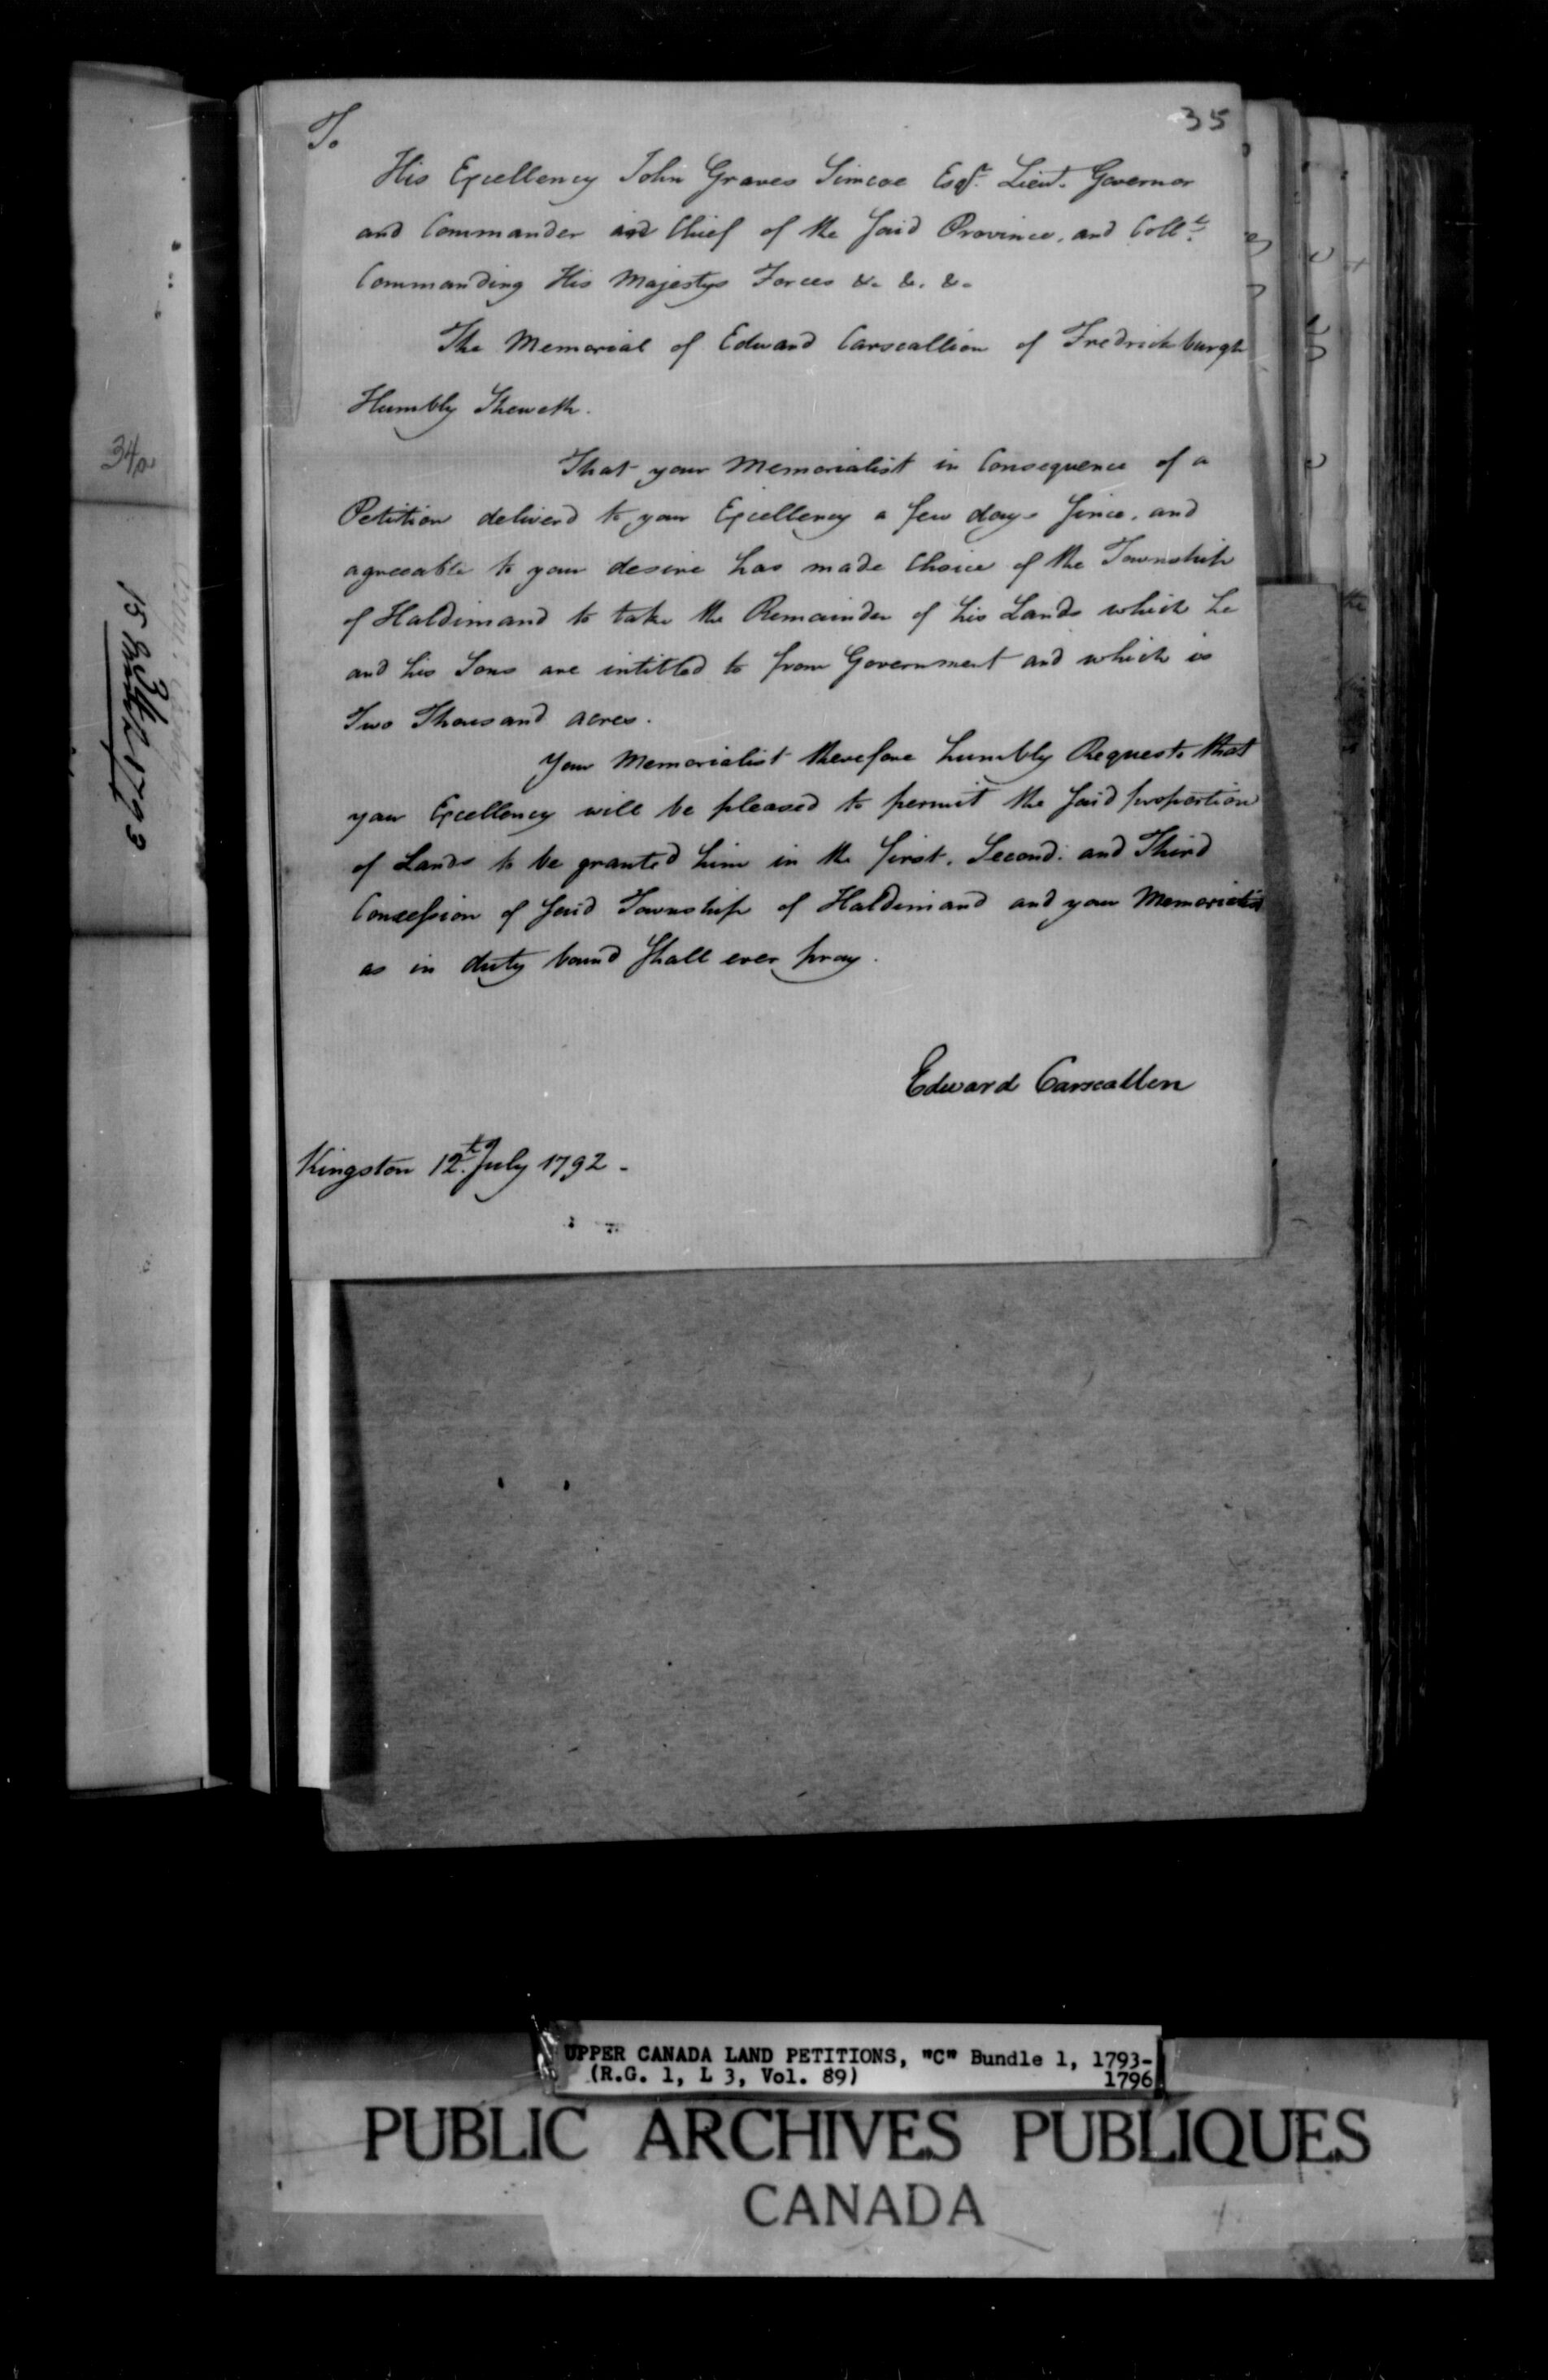 35
To
His Excellency John Graves Simcoe Esqr. Lieut. Governor
and Commander in Chief of the said Province, and Coll.
Commanding His Majestys Forces &. &. &.
The Memorial of Edward Carscallion of Fredrickburgh
Humbly Sheweth.
That your Memorialist in Consequence of a
Petition deliverd to your Excellency a few days since, and
agreeable to your desire has made Choice of the Township
of Haldimand to take the Remainder of his Lands which he
and his Sons are intitled to from Government and which is
Two Thousand acres.
Your Memorialist therefore humbly Requests that
your Excellency will be pleased to permit the said proportion
of Lands to be granted him in the first, Second, and Third
Concession of said Township of Haldimand and your Memorialist
as in duty bound shall ever pray.
Edward Carscallen
Kingston 12th July 1792 -
34a
1793
UPPER CANADA LAND PETITIONS, "C" Bundle 1, 1793-
(R.G. 1, L 3, Vol. 89) 1796
PUBLIC ARCHIVES PUBLIQUES
CANADA